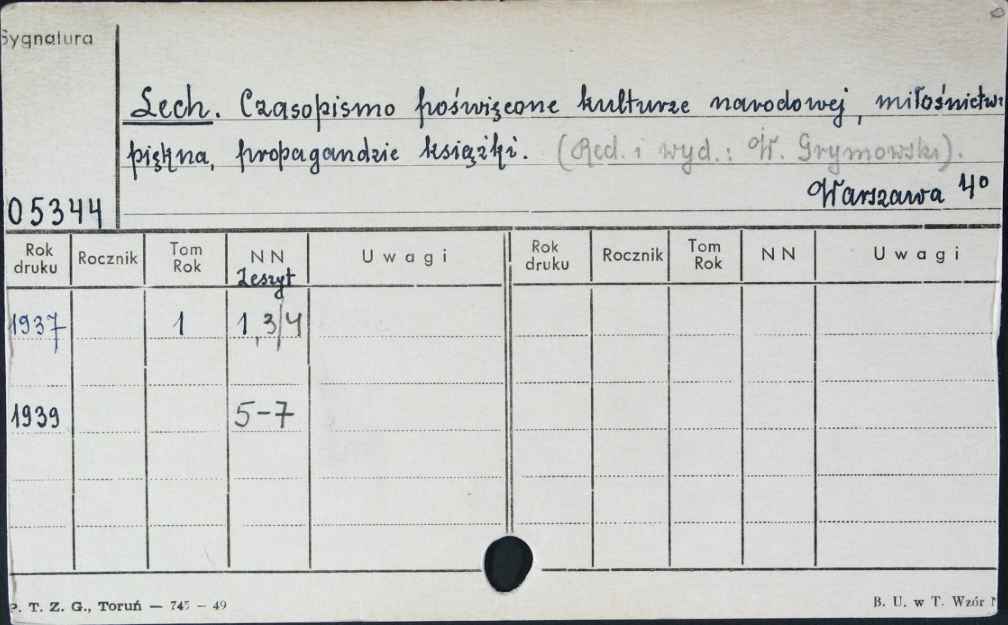 Sygnatura
Lech. Czasopismo poświęcone kulturze narodowej, miłośnictw
piękna, propagandzie książki. (Red. i wyd.: W. Grymowski).
Warszawa 4º
05344
Rok druku Rocznik Tom Rok NN Uwagi Rok druku Rocznik Tom Rok NN Uwagi
Zeszyt
1937 1 1,3/4
1939 5-7
P. T. Z. G., Toruń — 745 — 49 B. U. w T. Wzór